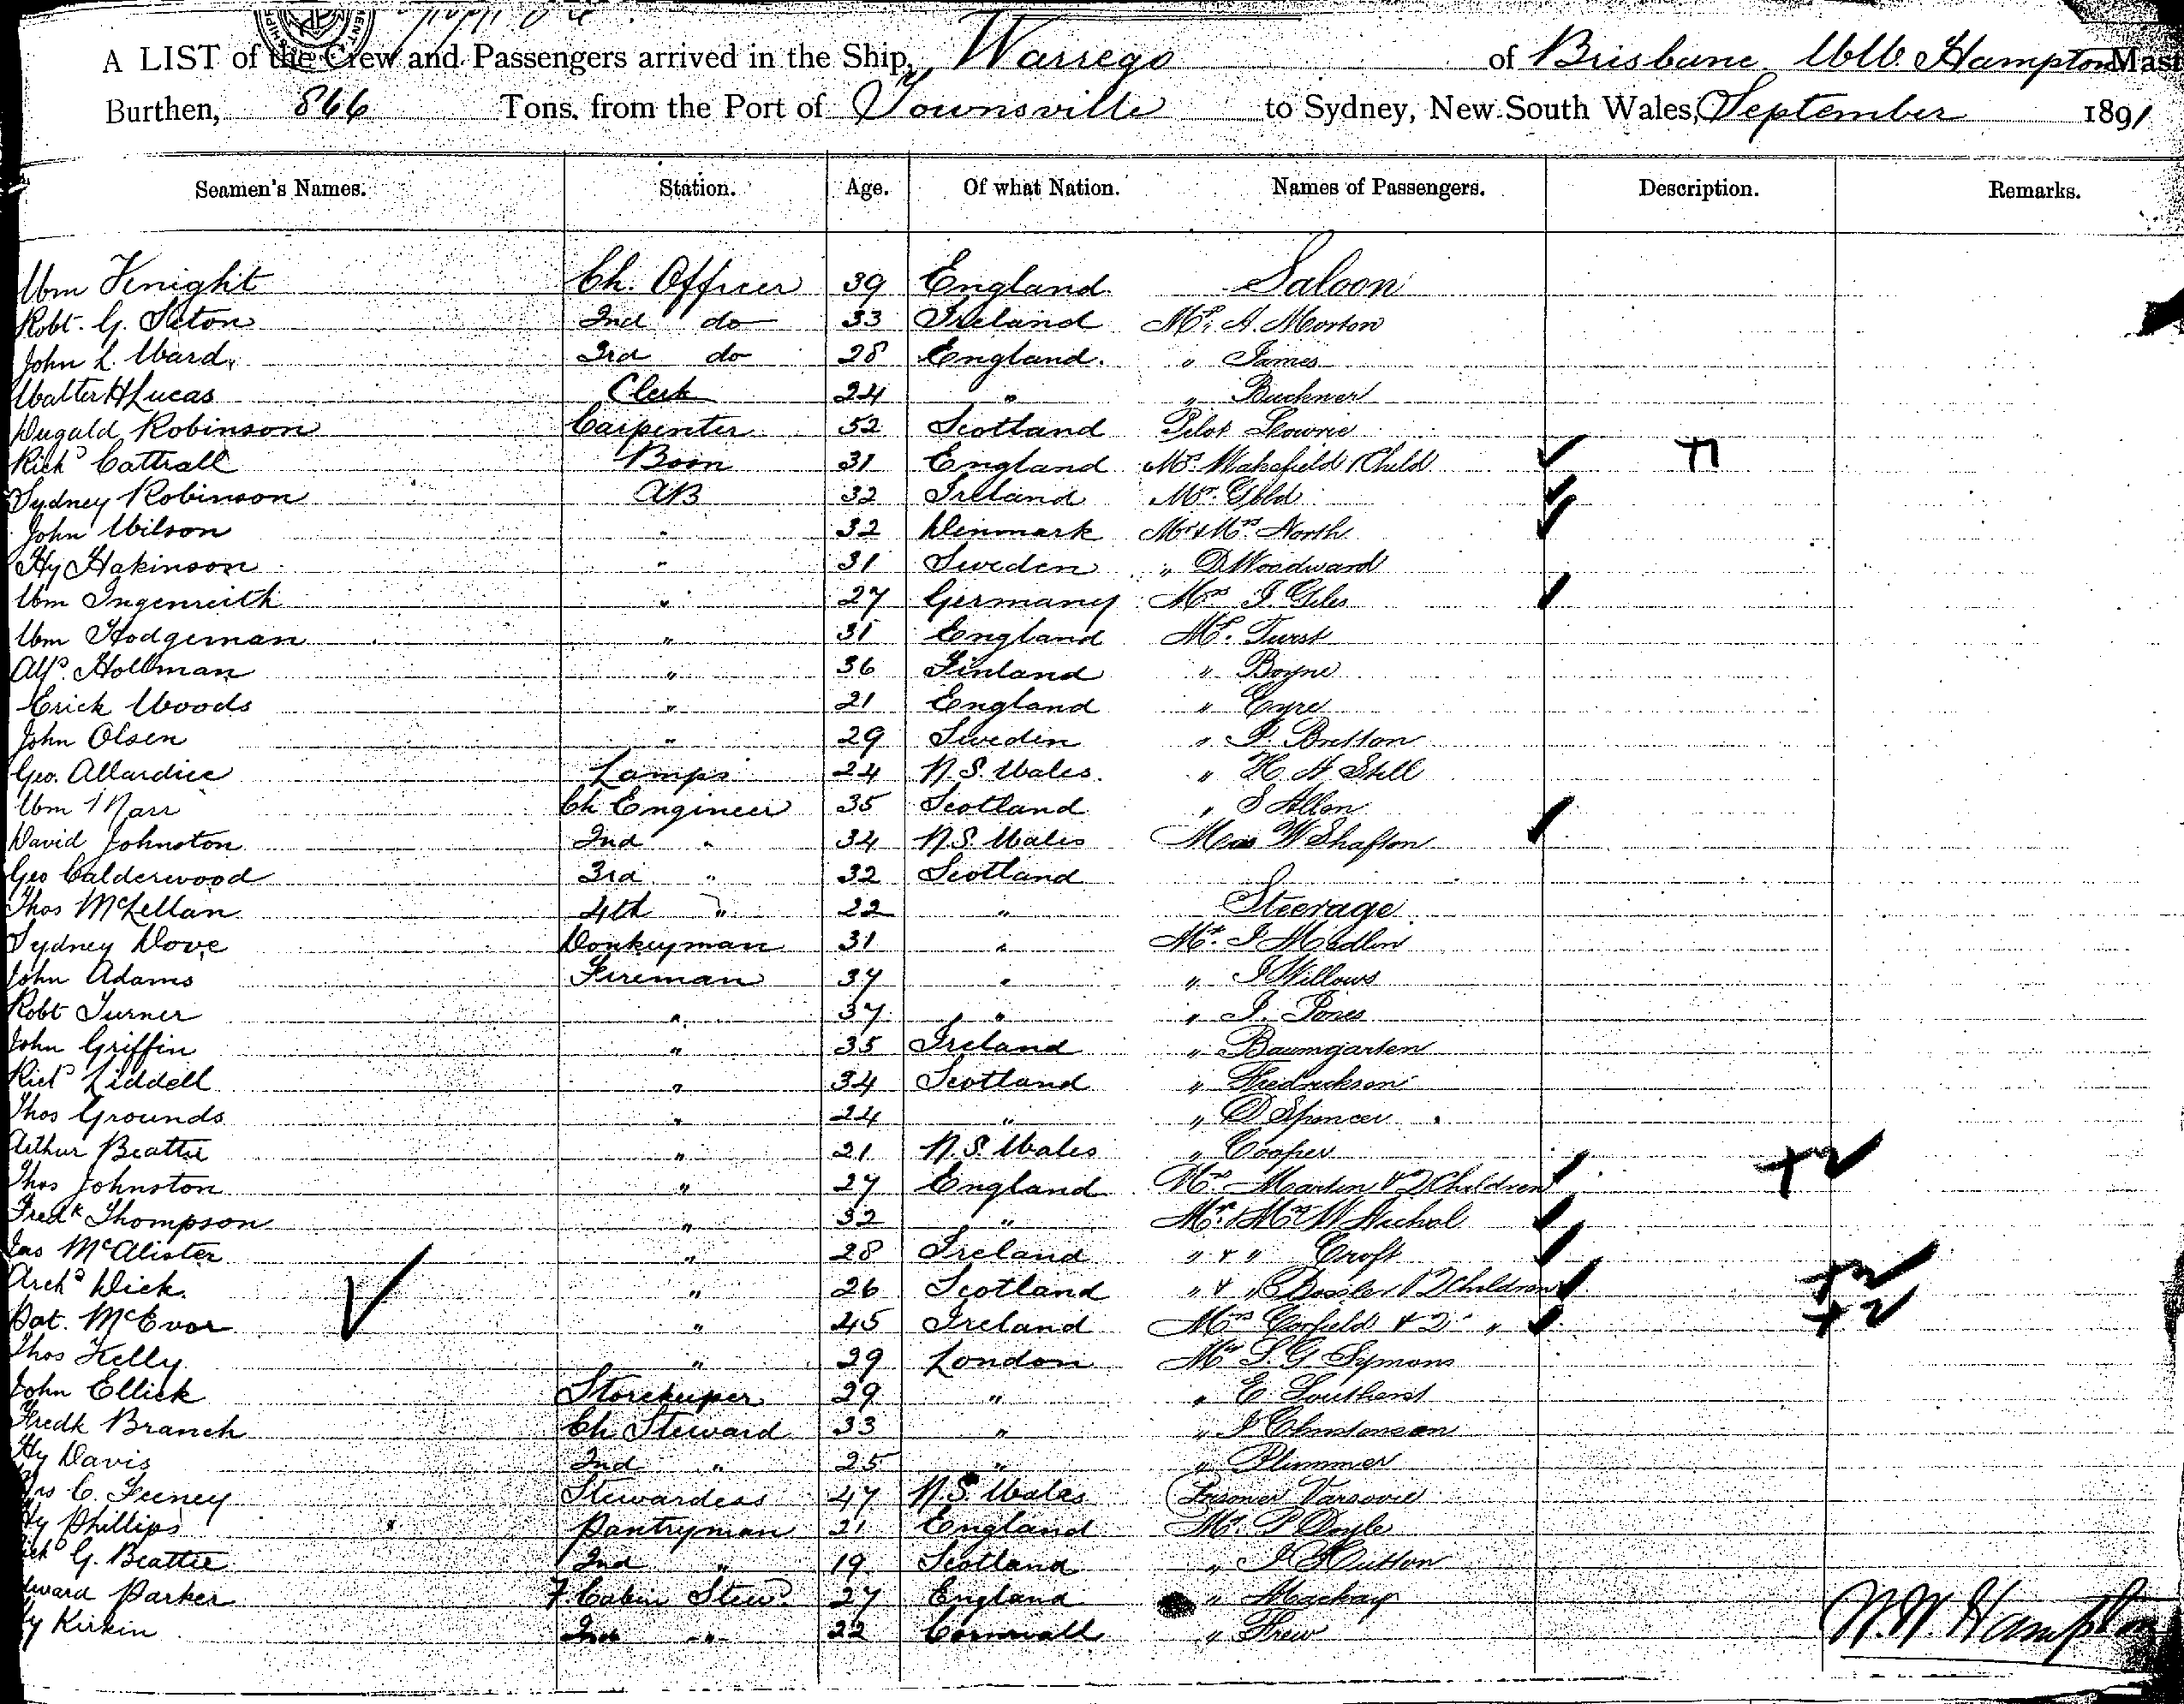 A LIST of the Crew and Passengers arrived in the Ship, Warrego of Brisbane, W.W. Hampton Mast
Burthen, 866 Tons, from the Port of Townsville to Sydney, New South Wales, September 1891
Seamen's Names. Station. Age. Of what Nation. Names of Passengers. Description. Remarks.
Wm Knight Ch. Officer 39 England Saloon
Robt. G. Seton 2nd do 33 Ireland Mr. A. Morton
John L. Ward 3rd do 28 England " James
Walter H Lucas Clerk 24 " " Buckner
Dugald Robinson Carpenter 52 Scotland Pilot Lowrie
Richd Cattrall Bosn 31 England Mrs. Wakefield 1 Child
Sydney Robinson AB 32 Ireland Mr. Gold
John Wilson " 32 Denmark Mr & Mrs North
Hy Hakinson " 31 Sweden " D Woodward
Wm Ingenreith " 27 Germany Mrs J. Giles
Wm Hodgeman " 31 England Mr. Turst
Alf. Hollman " 36 Finland " Boyne
Erick Woods " 21 England " Eyre
John Olsen " 29 Sweden " P. Bretton
Geo. Allardice Lamps 24 N.S. Wales " H. A Still
Wm Marr Ch Engineer 35 Scotland " S Allen
David Johnston 2nd " 34 N.S. Wales W Shafton
Geo Calderwood 3rd " 32 Scotland
Thos McLellan 4th " 22 " Steerage
Sydney Dove Donkeyman 31 " Mr. J Medlin
John Adams Fireman 37 " " J Willows
Robt Turner " 37 " " J. Jones
John Griffin " 35 Ireland " Baumgarten
Richd Liddell " 34 Scotland " Fredrickson
Thos Grounds " 24 " " D Spencer
Arthur Beattie " 21 N.S. Wales " Cooper
Thos Johnston " 27 England Mrs Martin & 2 Children +2
Fredk Thompson " 32 " Mr. & Mrs W Nichol
Jas McAlister " 28 Ireland " & " Croft
Archd Dick " 26 Scotland " & " 2 Children +2
Pat. McEvor " 45 Ireland Mrs Corfield & 2 " +2
Thos Kelly " 29 London Mr S. G Symons
John Ellick Storekeeper 29 " " E Southern
Fredk Branch Ch Steward 33 " " J
Hy Davis 2nd " 25 " " Plummer
Mrs C. Feeney Stewardess 47 N.S. Wales (Prisoner Varsovie
Hy Phillips Pantryman 21 England Mr. P Doyle
G. Beattie 2nd " 19 Scotland " J Hutton
Edward Parker F. Cabin Stewd 27 England " Mackay
Hy Kirkin 2nd " 22 Cornwall " Frew
W.W. Hampton